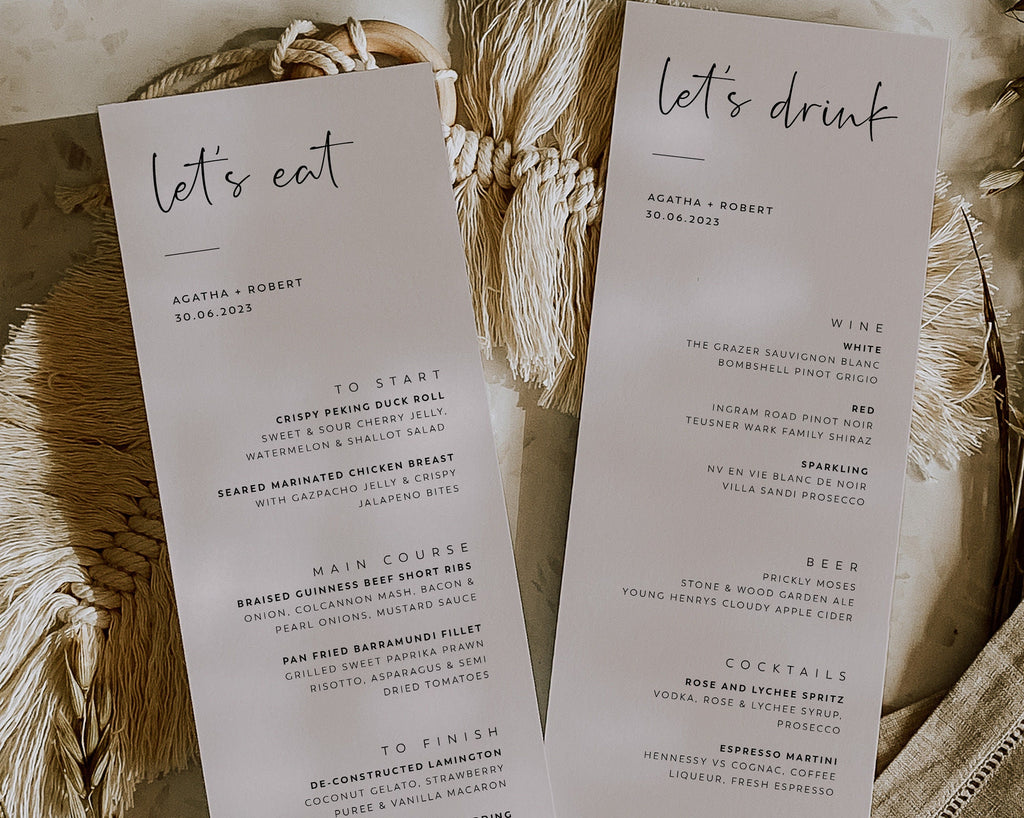 let's eat
AGATHA + ROBERT
30.06.2023
TO START
CRISPY PEKING DUCK ROLL
SWEET & SOUR CHERRY JELLY,
WATERMELON & SHALLOT SALAD
SEARED MARINATED CHICKEN BREAST
WITH GAZPACHO JELLY & CRISPY
JALAPENO BITES
MAIN COURSE
BRAISED GUINNESS BEEF SHORT RIBS
ONION, COLCANNON MASH, BACON &
PEARL ONIONS, MUSTARD SAUCE
PAN FRIED BARRAMUNDI FILLET
GRILLED SWEET PAPRIKA PRAWN
RISOTTO, ASPARAGUS & SEMI
DRIED TOMATOES
TO FINISH
DE-CONSTRUCTED LAMINGTON
COCONUT GELATO, STRAWBERRY
PUREE & VANILLA MACARON
let's drink
AGATHA + ROBERT
30.06.2023
WINE
WHITE
THE GRAZER SAUVIGNON BLANC
BOMBSHELL PINOT GRIGIO
RED
INGRAM ROAD PINOT NOIR
TEUSNER WARK FAMILY SHIRAZ
SPARKLING
NV EN VIE BLANC DE NOIR
VILLA SANDI PROSECCO
BEER
PRICKLY MOSES
STONE & WOOD GARDEN ALE
YOUNG HENRYS CLOUDY APPLE CIDER
COCKTAILS
ROSE AND LYCHEE SPRITZ
VODKA, ROSE & LYCHEE SYRUP,
PROSECCO
ESPRESSO MARTINI
HENNESSY VS COGNAC, COFFEE
LIQUEUR, FRESH ESPRESSO